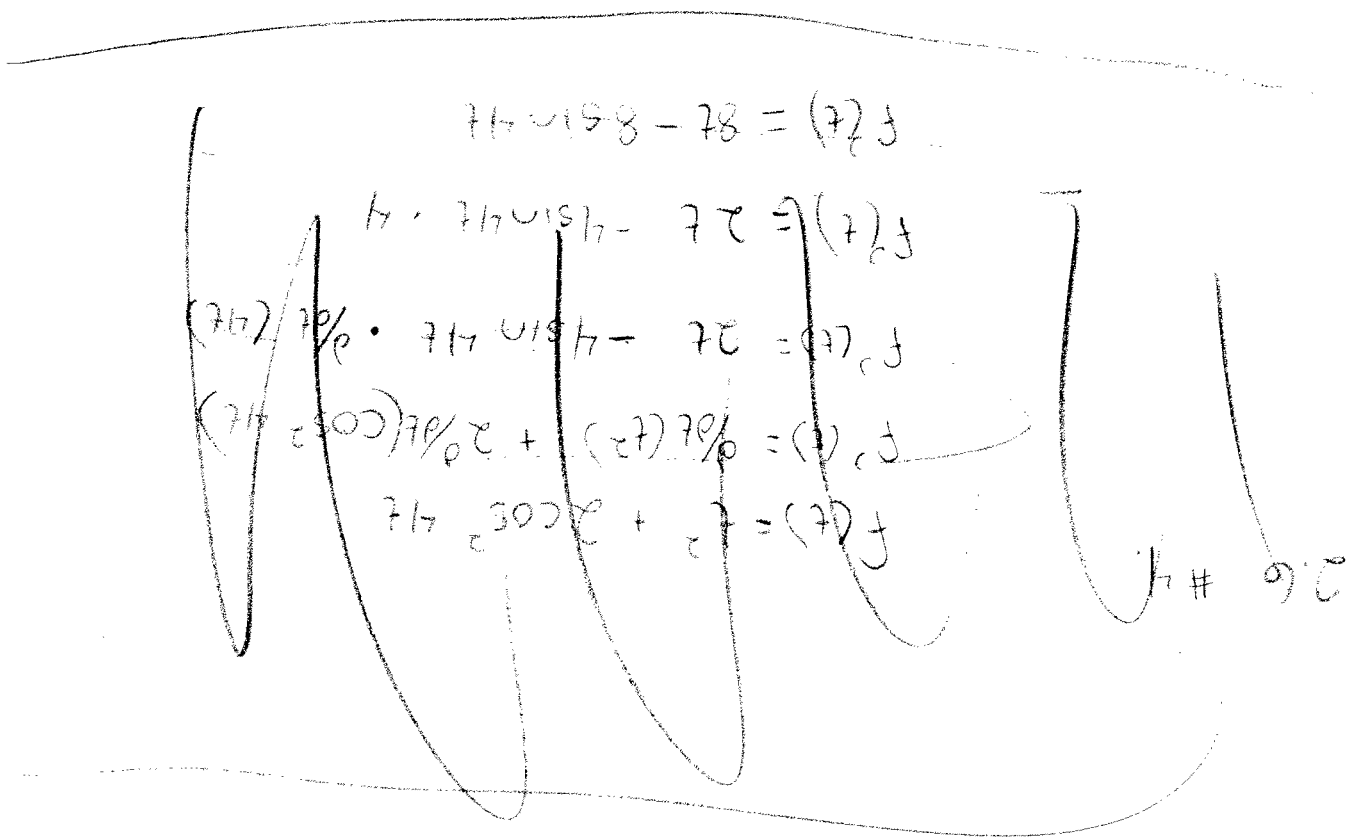 2.6 #4.
f(t) = t² + 2cos² 4t
f'(t) = d/dt (t²) + 2 d/dt (cos² 4t)
f'(t) = 2t - 4 sin 4t · d/dt (4t)
f'(t) = 2t - 4 sin 4t · 4
f'(t) = 8t - 8 sin 4t